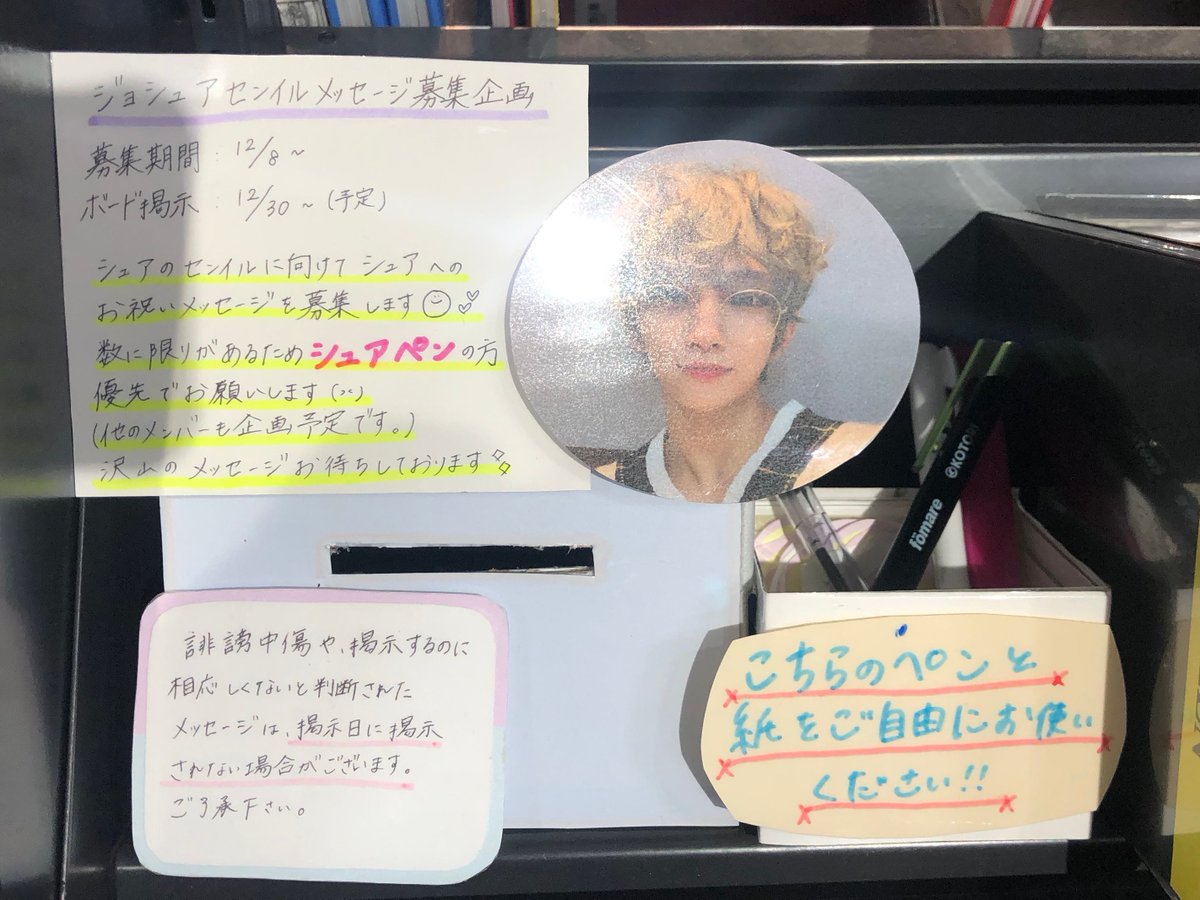 ジョシュアセンイルメッセージ募集企画
募集期間：12/8～
ボード掲示：12/30～（予定）
シュアのセンイルに向けてシュアへの
お祝いメッセージを募集します
数に限りがあるためシュアペンの方
優先でお願いします
（他のメンバーも企画予定です。）
沢山のメッセージお待ちしております
誹謗中傷や、掲示するのに
相応しくないと判断された
メッセージは、掲示日に掲示
されない場合がございます。
ご了承下さい。
fömare ©KOTORI
こちらのペンと
紙をご自由にお使い
ください!!